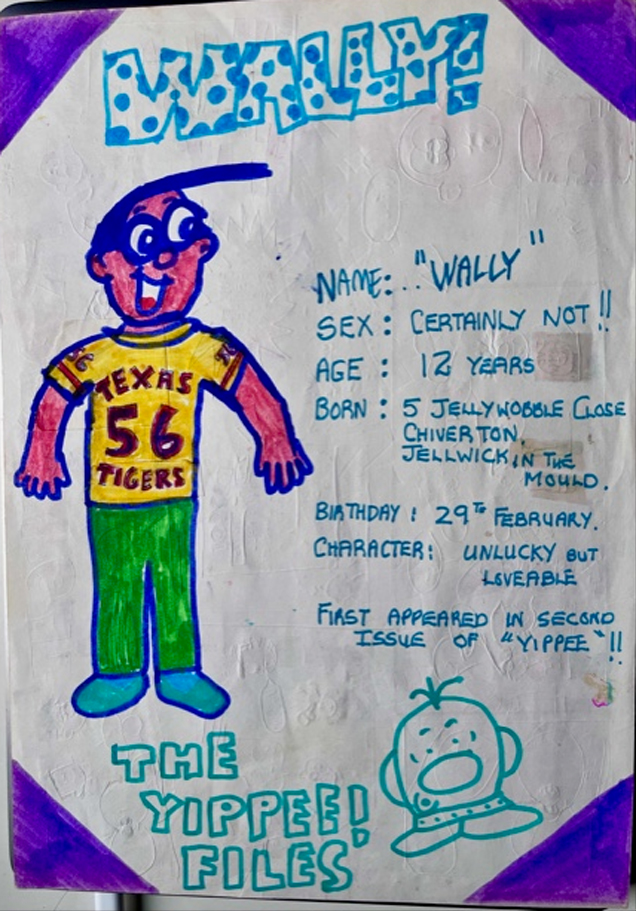 WALLY!
TEXAS
56
TIGERS
NAME: "WALLY"
SEX: CERTAINLY NOT!!
AGE: 12 YEARS
BORN: 5 JELLYWOBBLE CLOSE
CHIVERTON,
JELLWICK IN THE
MOULD.
BIRTHDAY: 29TH FEBRUARY.
CHARACTER: UNLUCKY BUT
LOVEABLE
FIRST APPEARED IN SECOND
ISSUE OF "YIPPEE"!!
THE
YIPPEE!
FILES